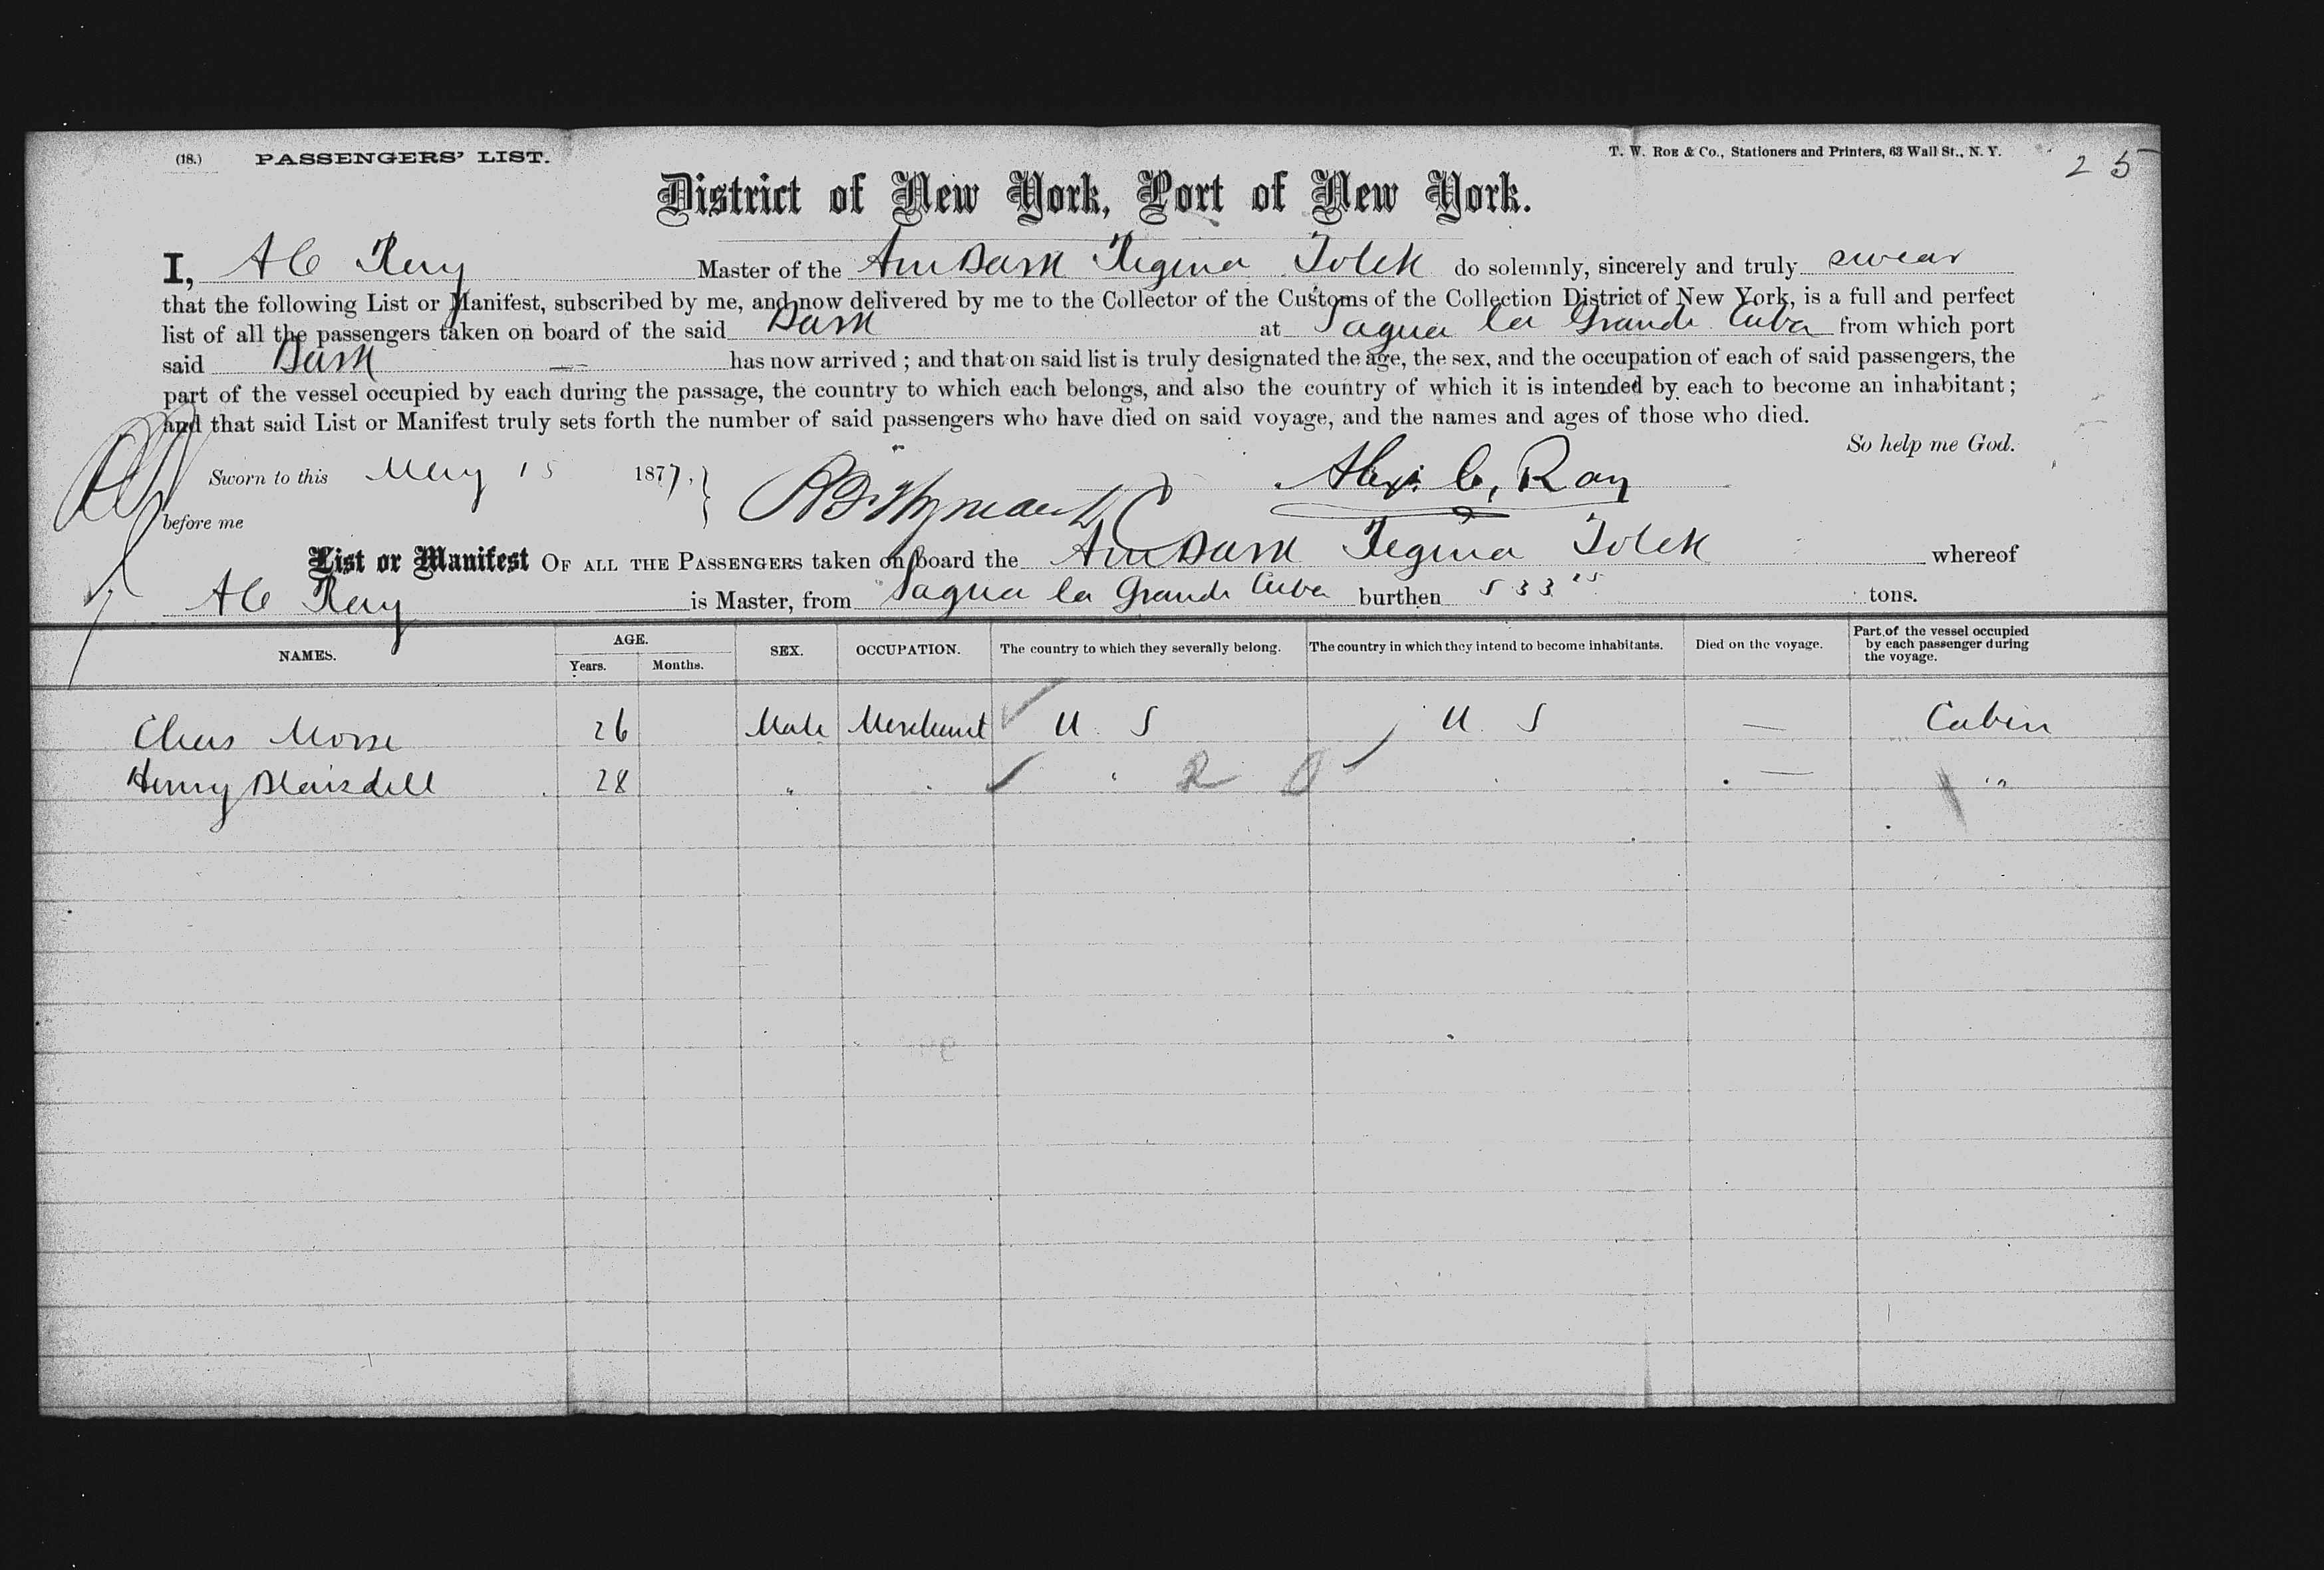 (18.) PASSENGERS' LIST. T. W. ROE & Co., Stationers and Printers, 63 Wall St., N. Y. 25
District of New York, Port of New York.
I, A C Ray Master of the Am Bark Regina Tolck do solemnly, sincerely and truly swear
that the following List or Manifest, subscribed by me, and now delivered by me to the Collector of the Customs of the Collection District of New York, is a full and perfect
list of all the passengers taken on board of the said Bark at Sagua la Grande Cuba from which port
said Bark has now arrived ; and that on said list is truly designated the age, the sex, and the occupation of each of said passengers, the
part of the vessel occupied by each during the passage, the country to which each belongs, and also the country of which it is intended by each to become an inhabitant ;
and that said List or Manifest truly sets forth the number of said passengers who have died on said voyage, and the names and ages of those who died.
So help me God.
Sworn to this May 15 1877, } Alex. C, Ray
before me
List or Manifest OF ALL THE PASSENGERS taken on board the Am Bark Regina Tolck whereof
A C Ray is Master, from Sagua la Grande Cuba burthen 533 25 tons.
NAMES. AGE. Years. Months. SEX. OCCUPATION. The country to which they severally belong. The country in which they intend to become inhabitants. Died on the voyage. Part of the vessel occupied by each passenger during the voyage.
Chas Morse 26 Male Merchant U. S U. S — Cabin
Henry Blaisdell 28 " " " 2 0 " — "